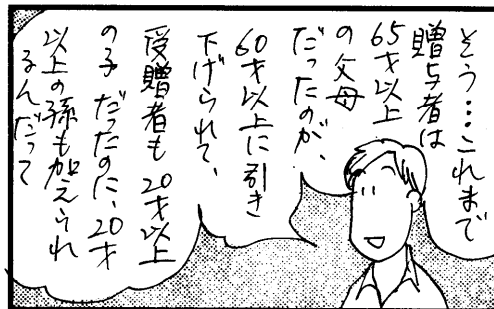 そう…これまで
贈与者は
65才以上
の父母
だったのが、
60才以上に引き
下げられて、
受贈者も20才以上
の子だったのに、20才
以上の孫も加えられ
るんだって